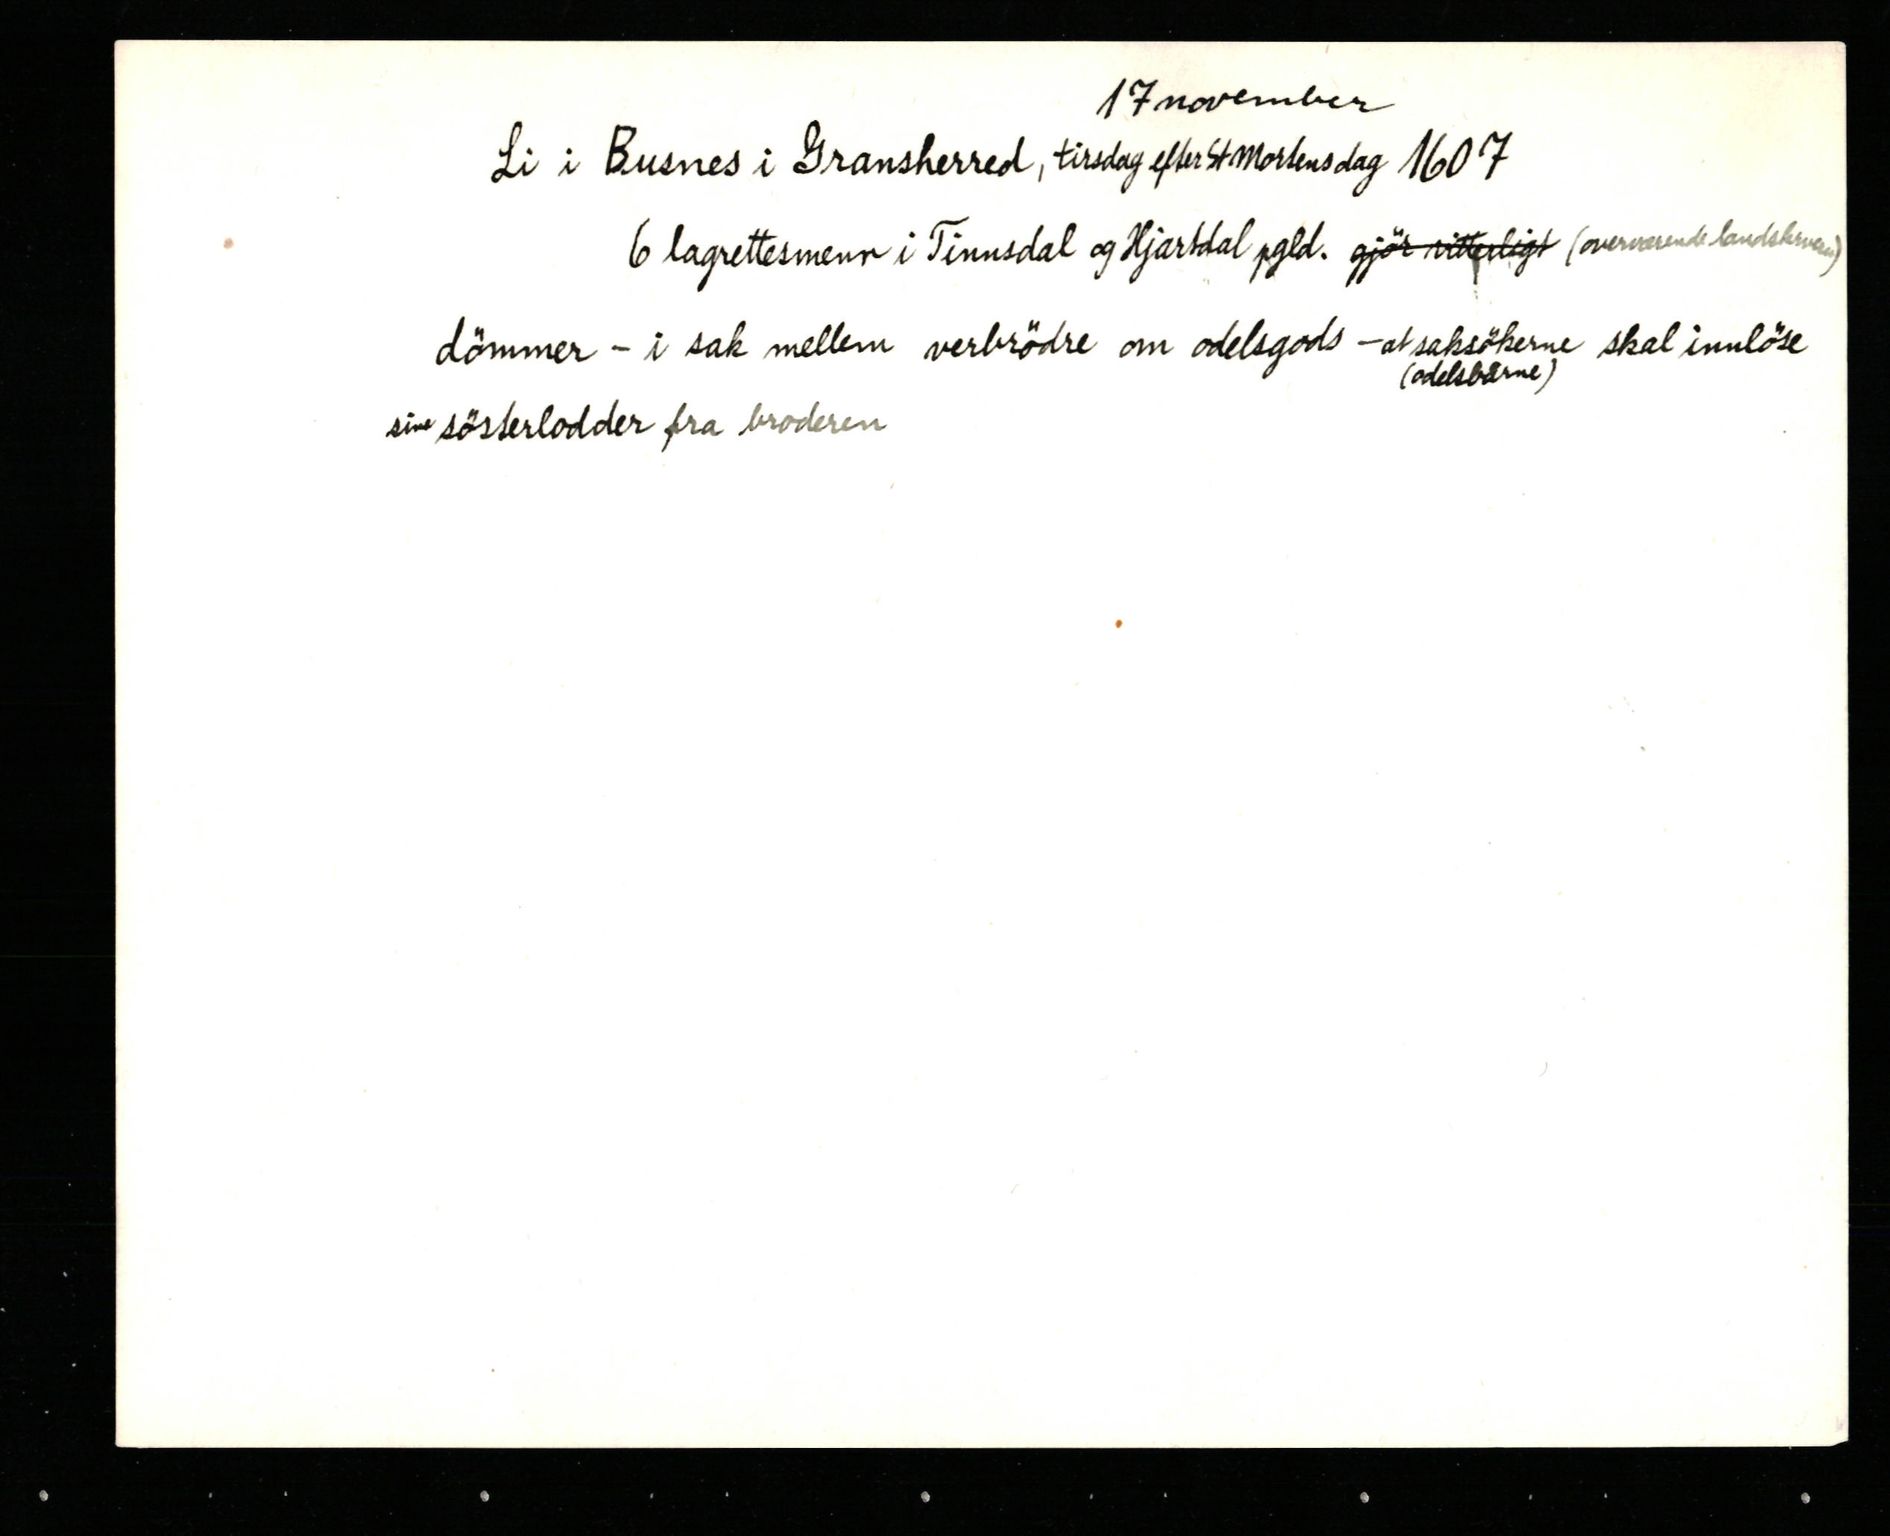 17 november
Li i Busnes i Gransherred, tirsdag efter St Mortensdag 1607
6 lagrettesmenn i Tinnsdal og Hjartdal pgld. gjör vitterligt (overværende landskriveren)
dömmer - i sak mellem verbrödre om odelsgods - at saksökerne skal innlöse
(odelsbårne)
sine sösterlodder fra broderen